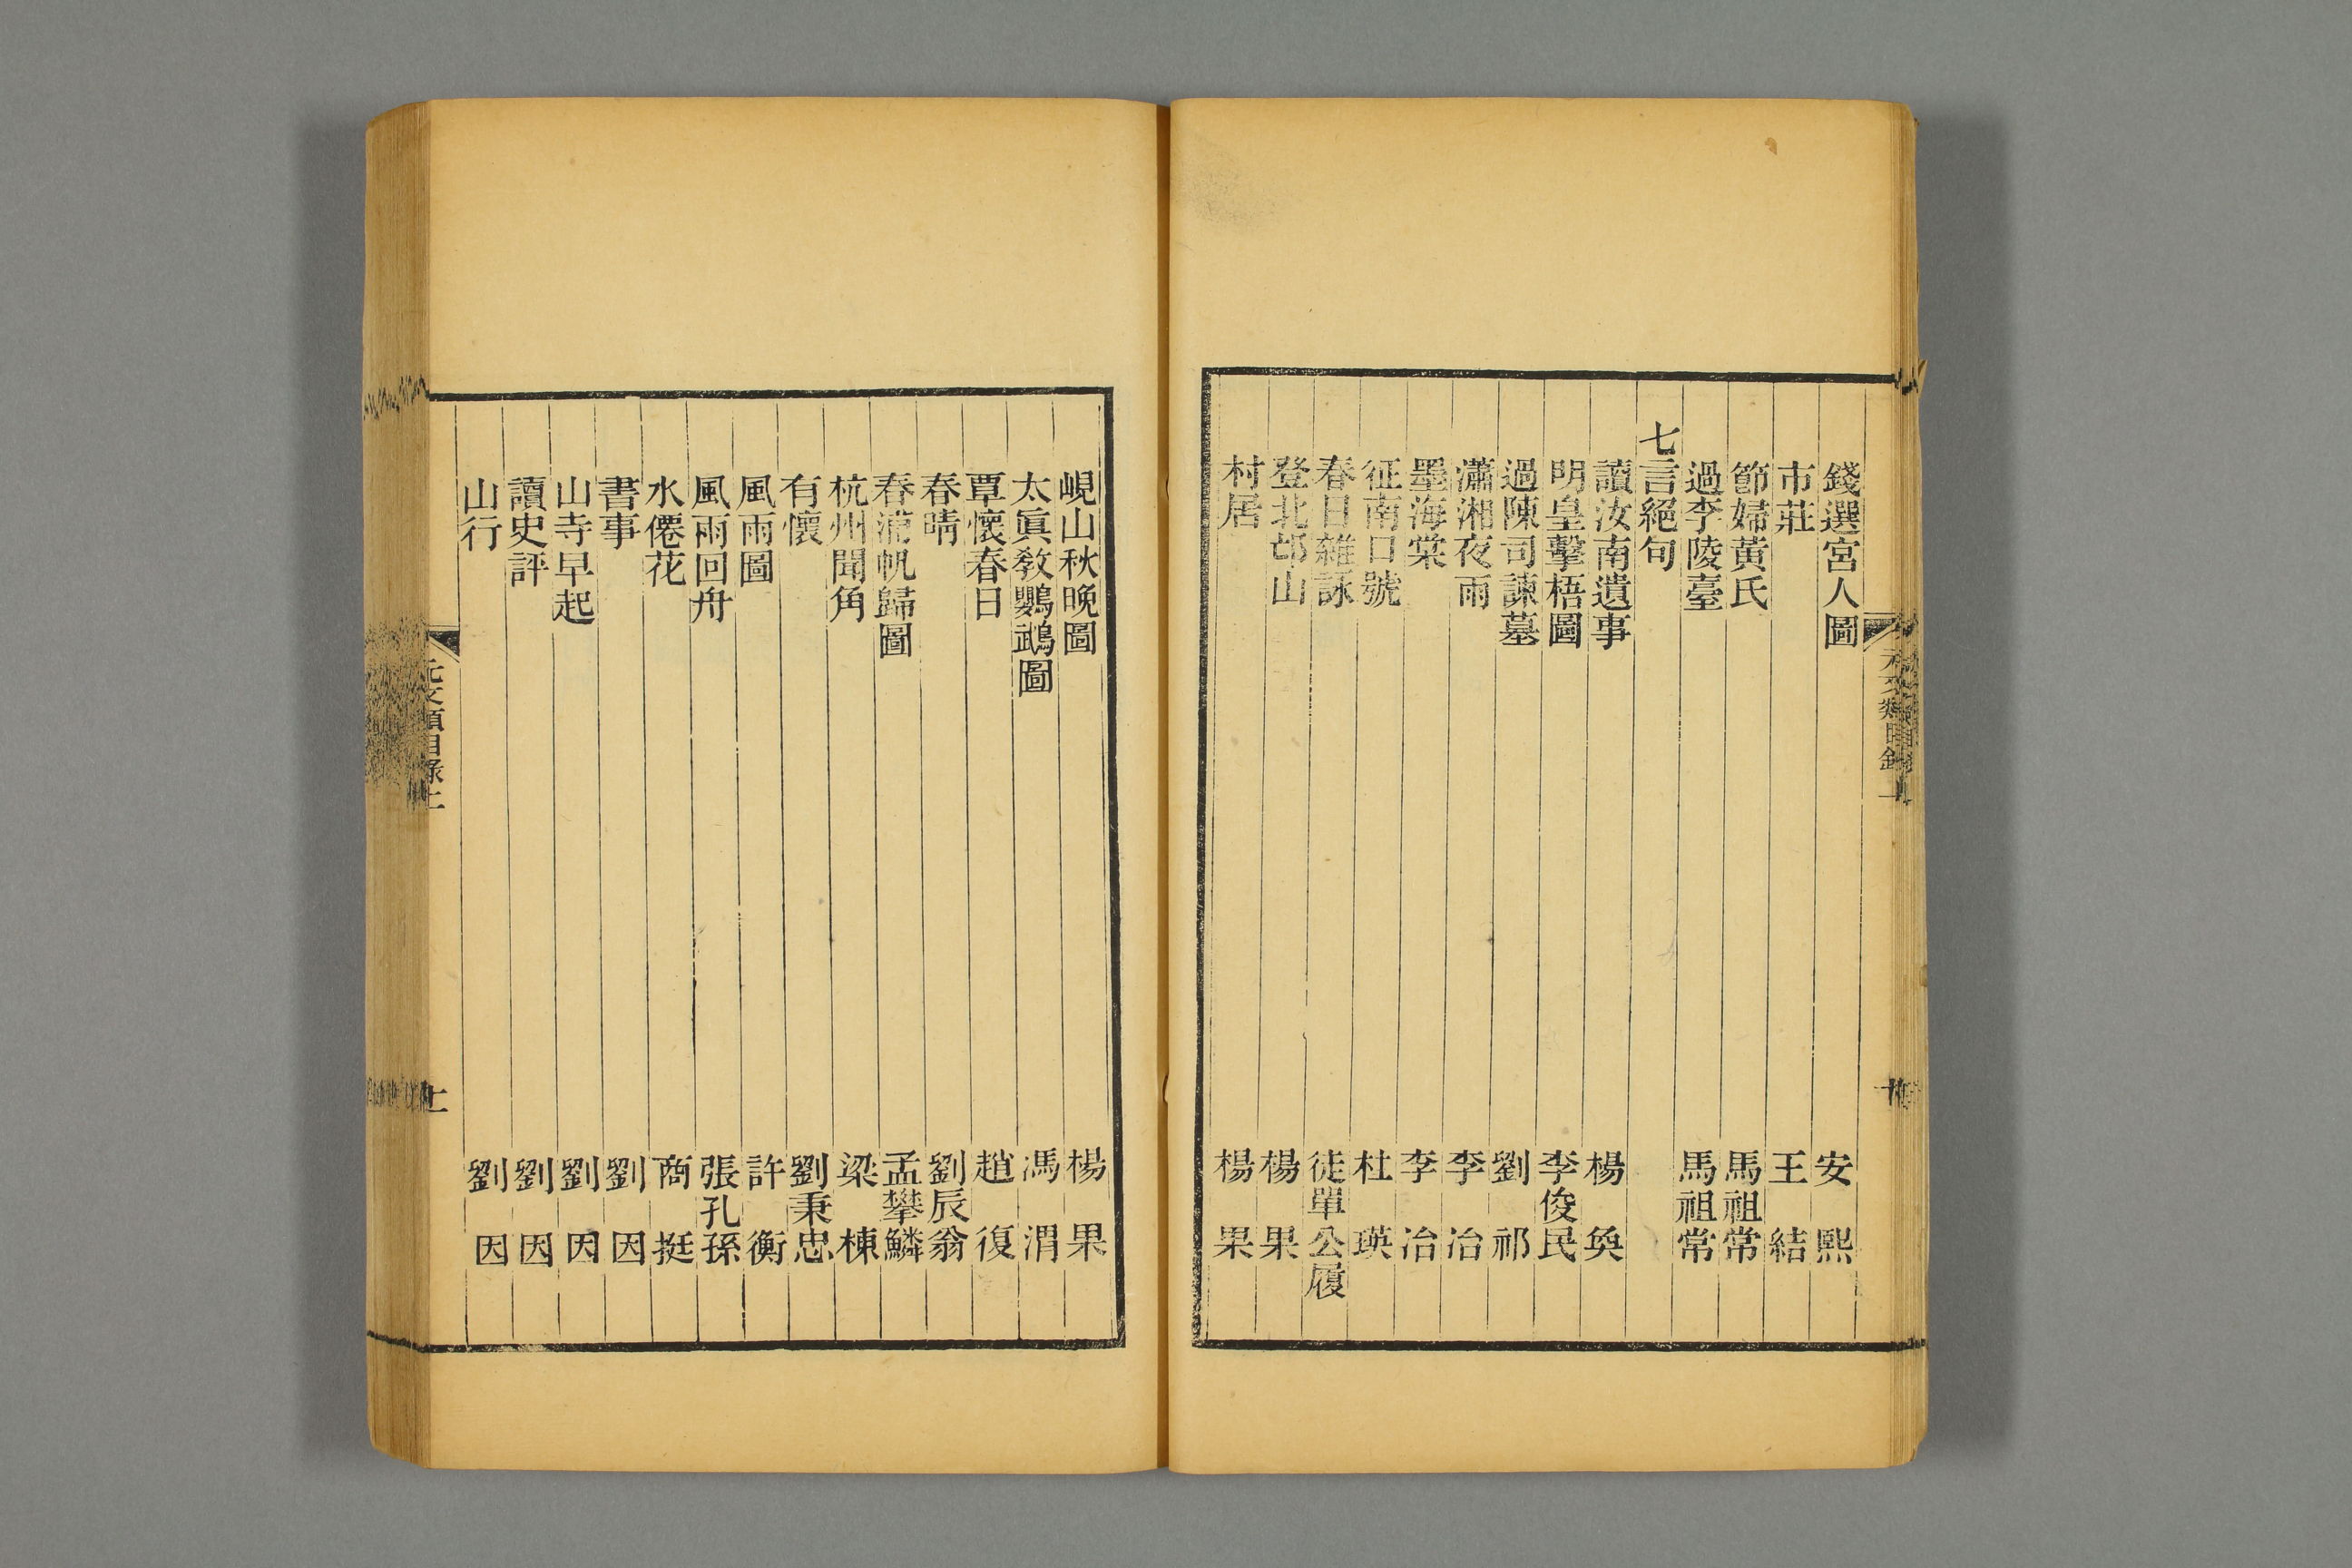 錢選宮人圖 安熙
市莊 王結
節婦黃氏 馬祖常
過李陵臺 馬祖常
七言絕句
讀汝南遺事 楊奐
明皇擊梧圖 李俊民
過陳司諫墓 劉祁
瀟湘夜雨 李冶
墨海棠 李冶
征南口號 杜瑛
春日雜詠 徒單公履
登北邙山 楊果
村居 楊果
峴山秋晚圖 楊果
太眞敎鸚鵡圖 馮渭
覃懷春日 趙復
春晴 劉辰翁
春浦帆歸圖 孟攀鱗
杭州聞角 梁棟
有懷 劉秉忠
風雨圖 許衡
風雨回舟 張孔孫
水僊花 商挺
書事 劉因
山寺早起 劉因
讀史評 劉因
山行 劉因
元文類目錄上